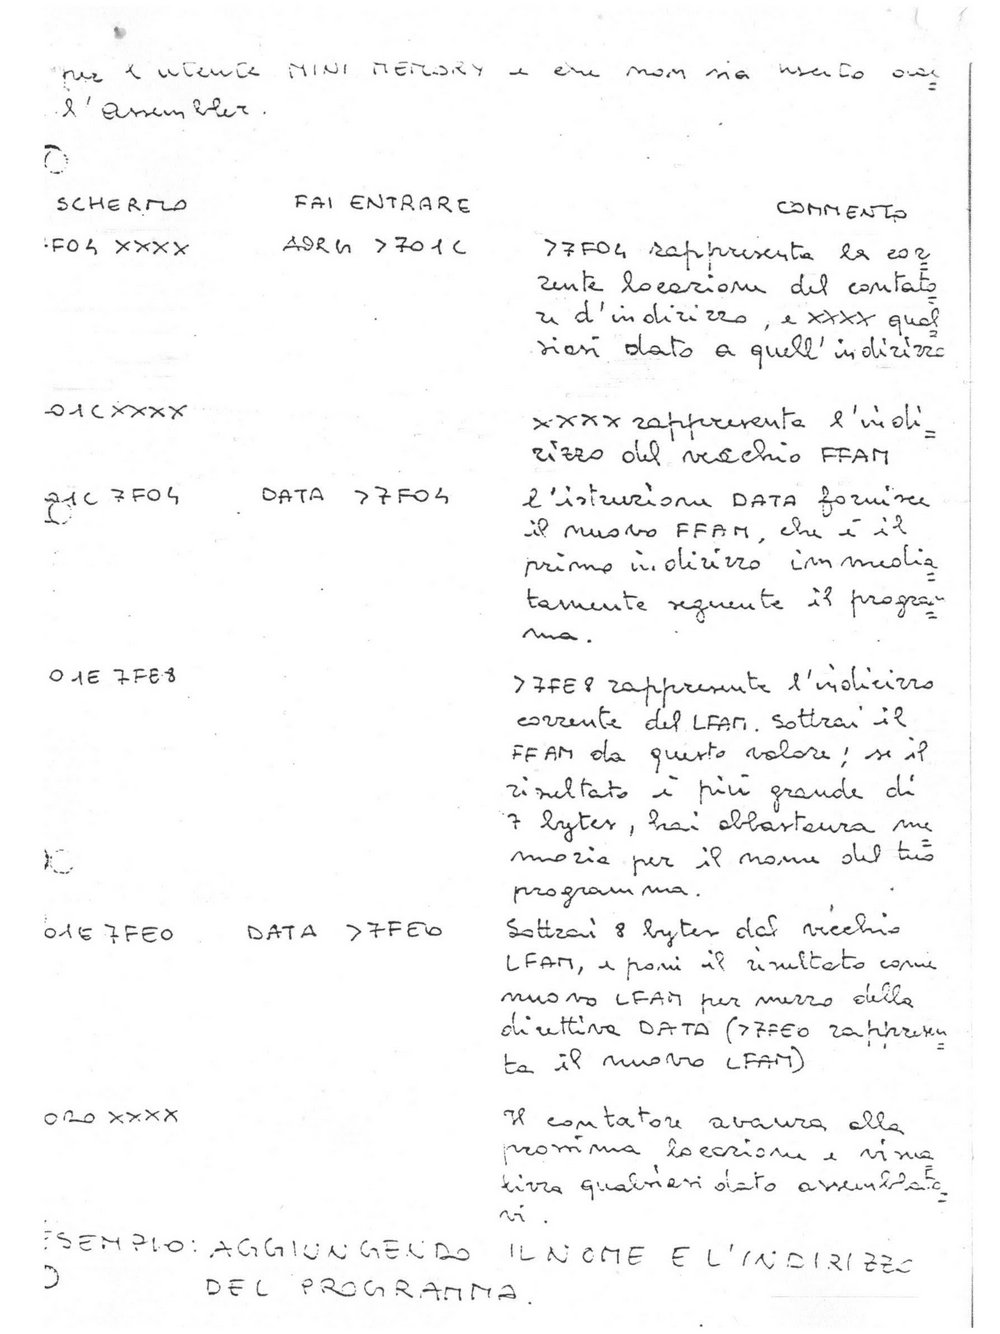 per l'utente MINI MEMORY e che non sia uscito dal=
l'assembler.
SCHERMO FAI ENTRARE COMMENTO
F04 XXXX AORG >701C >7F04 rappresenta la cor=
rente locazione del contato=
re d'indirizzo, e XXXX qual=
siasi dato a quell'indirizzo
01C XXXX XXXX rappresenta l'indi=
rizzo del vecchio FFAM
01C 7F04 DATA >7F04 l'istruzione DATA fornisce
il nuovo FFAM, che è il
primo indirizzo immedia=
tamente seguente il program=
ma.
01E 7FE8 >7FE8 rappresenta l'indirizzo
corrente del LFAM. Sottrai il
FFAM da questo valore; se il
risultato è più grande di
7 bytes, hai abbastanza me=
moria per il nome del tuo
programma.
01E 7FE0 DATA >7FE0 Sottrai 8 bytes dal vecchio
LFAM, e poni il risultato come
nuovo LFAM per mezzo della
direttiva DATA (>7FE0 rappresen=
ta il nuovo LFAM)
020 XXXX Il contatore avanza alla
prossima locazione e visua=
lizza qualsiasi dato assemblato=
vi.
ESEMPIO: AGGIUNGENDO IL NOME E L'INDIRIZZO
DEL PROGRAMMA.